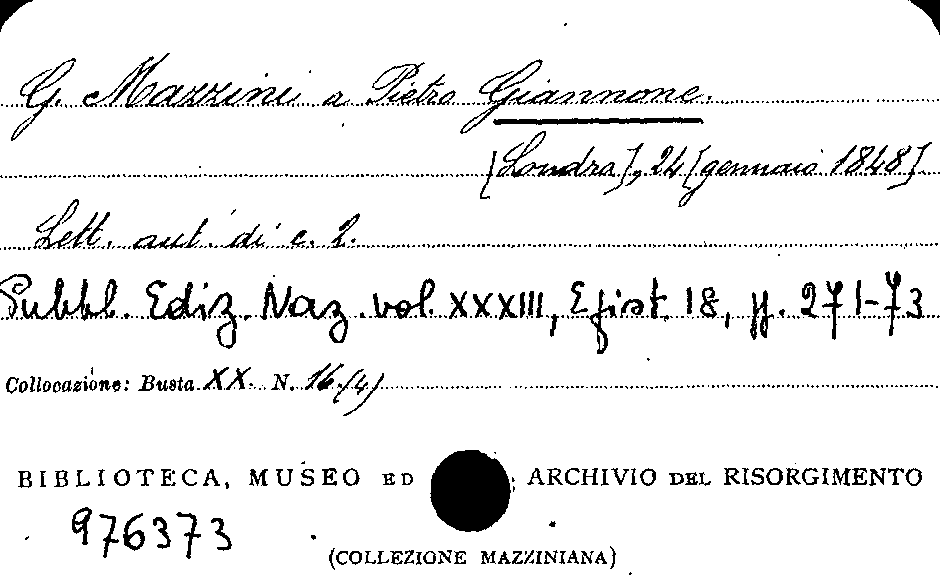 G. Mazzini a Pietro Giannone.
[Londra], 24 [gennaio 1848]
Lett. aut. di c. 2.
Pubbl. Ediz. Naz. vol. XXXIII, Epist. 18, pp. 271-73
Collocazione: Busta XX. N. 16/(4)
BIBLIOTECA, MUSEO ED ARCHIVIO DEL RISORGIMENTO
976373
(COLLEZIONE MAZZINIANA)